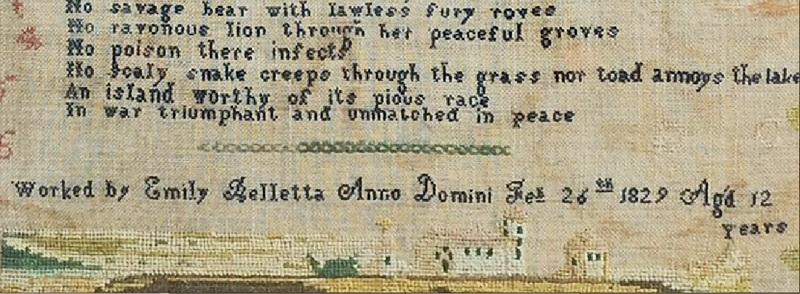 No savage bear with lawless fury roves
No ravonous lion through her peaceful groves
No poison there infects
No scaly snake creeps through the grass nor toad annoys the lake
An island worthy of its pious race
In war triumphant and unmatched in peace
Worked by Emily Belletta Anno Domini Feb 26th 1829 Agd 12
years